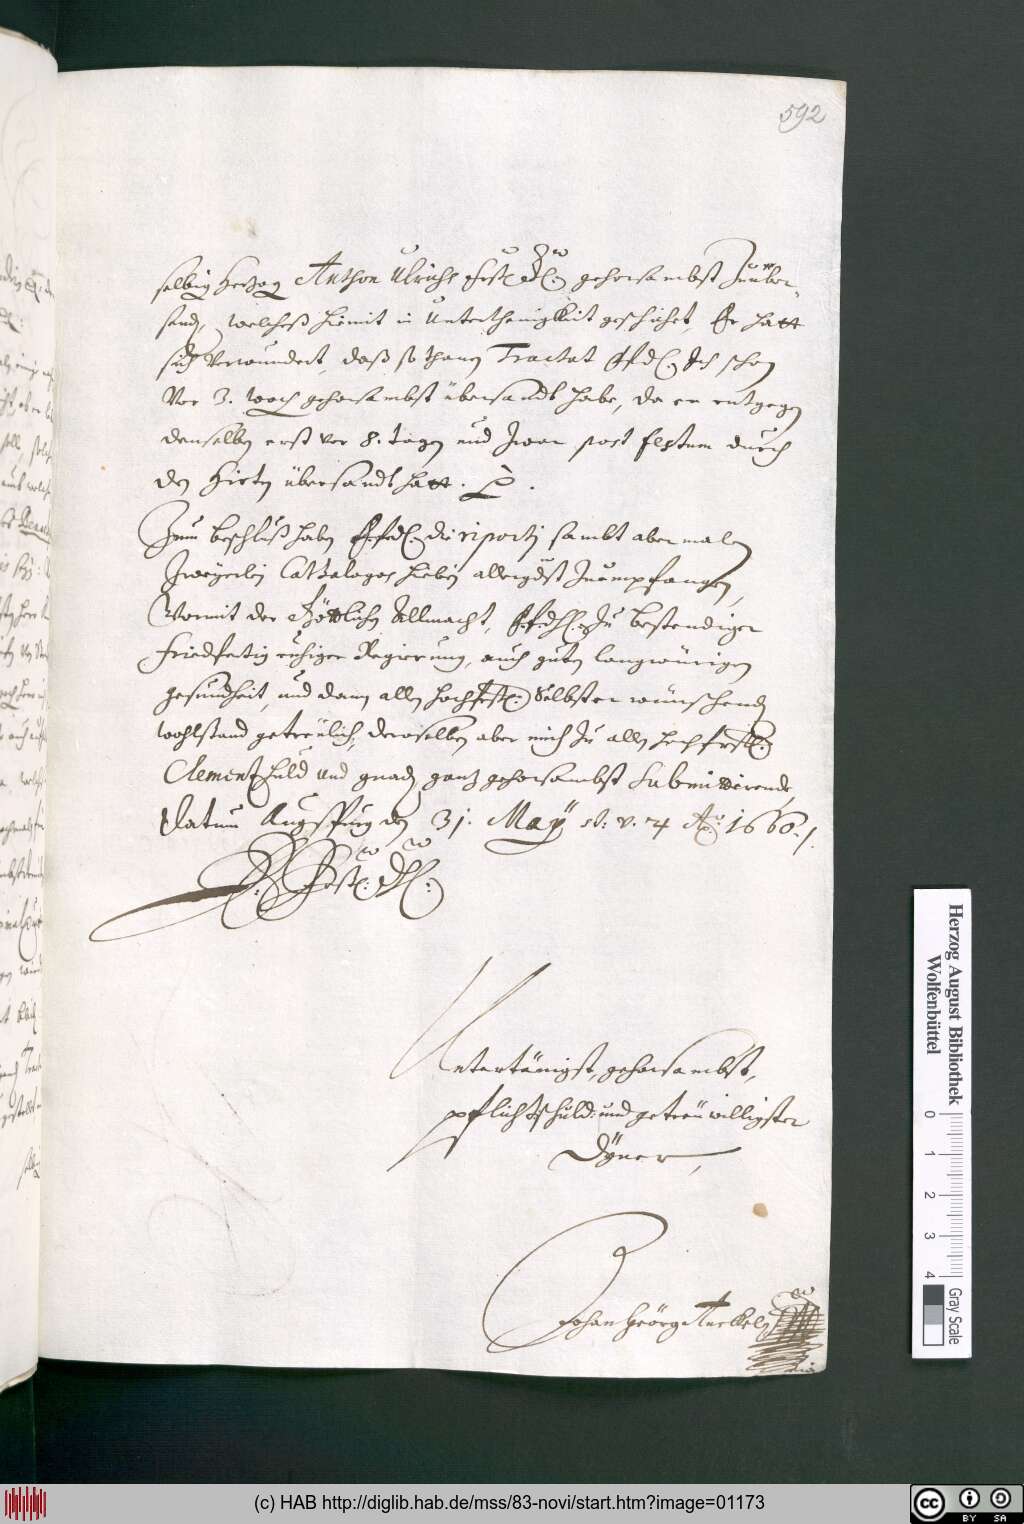 592
selbig Herzog Anthon Ulrichs Frstl. Dhl. gehorsambst Zuüber-
send, welcheß hiemit in Unterthenigkeit geschiehet, Er hatt
sich verwundert, daß so thanen Tractat E.f.dl. Ich schon
Vor 3. woch gehorsambst übersandt habe, da er entgegen
denselben erst vor 8. tagen und Zwar post festum durch
den Hirten übersandt hatt.
Zum beschluß haben E.f.dl. die riporti sambt abermalen
Zweÿerleÿ Cathalogos hiebeÿ allergdst Zuempfangen,
Vormit der Göttlichen Allmacht, E.f.dhl. Zu bestendiger
friedfertig ruhiger Regierung, auch guten langwürigen
gesundheit, und dann allen hochfrstl. Selbsterwünschenden
wohlstand getreulich, deroselben aber mich Zu allen hochfrstl.
Clementz huld und gnaden gantz gehorsambst submittirende,
Datum Augspurg den 31. Maÿ st. v. Aō. 1660.
E. Frstl. Dhl.
Untertänigst, gehorsambst,
pflichtschuld: und getreüwilligster
Dÿner,
Johan Geörg Anckel
selbig
Herzog August Bibliothek
Wolfenbüttel
0 1 2 3 4
Gray Scale
(c) HAB http://diglib.hab.de/mss/83-novi/start.htm?image=01173
cc BY SA